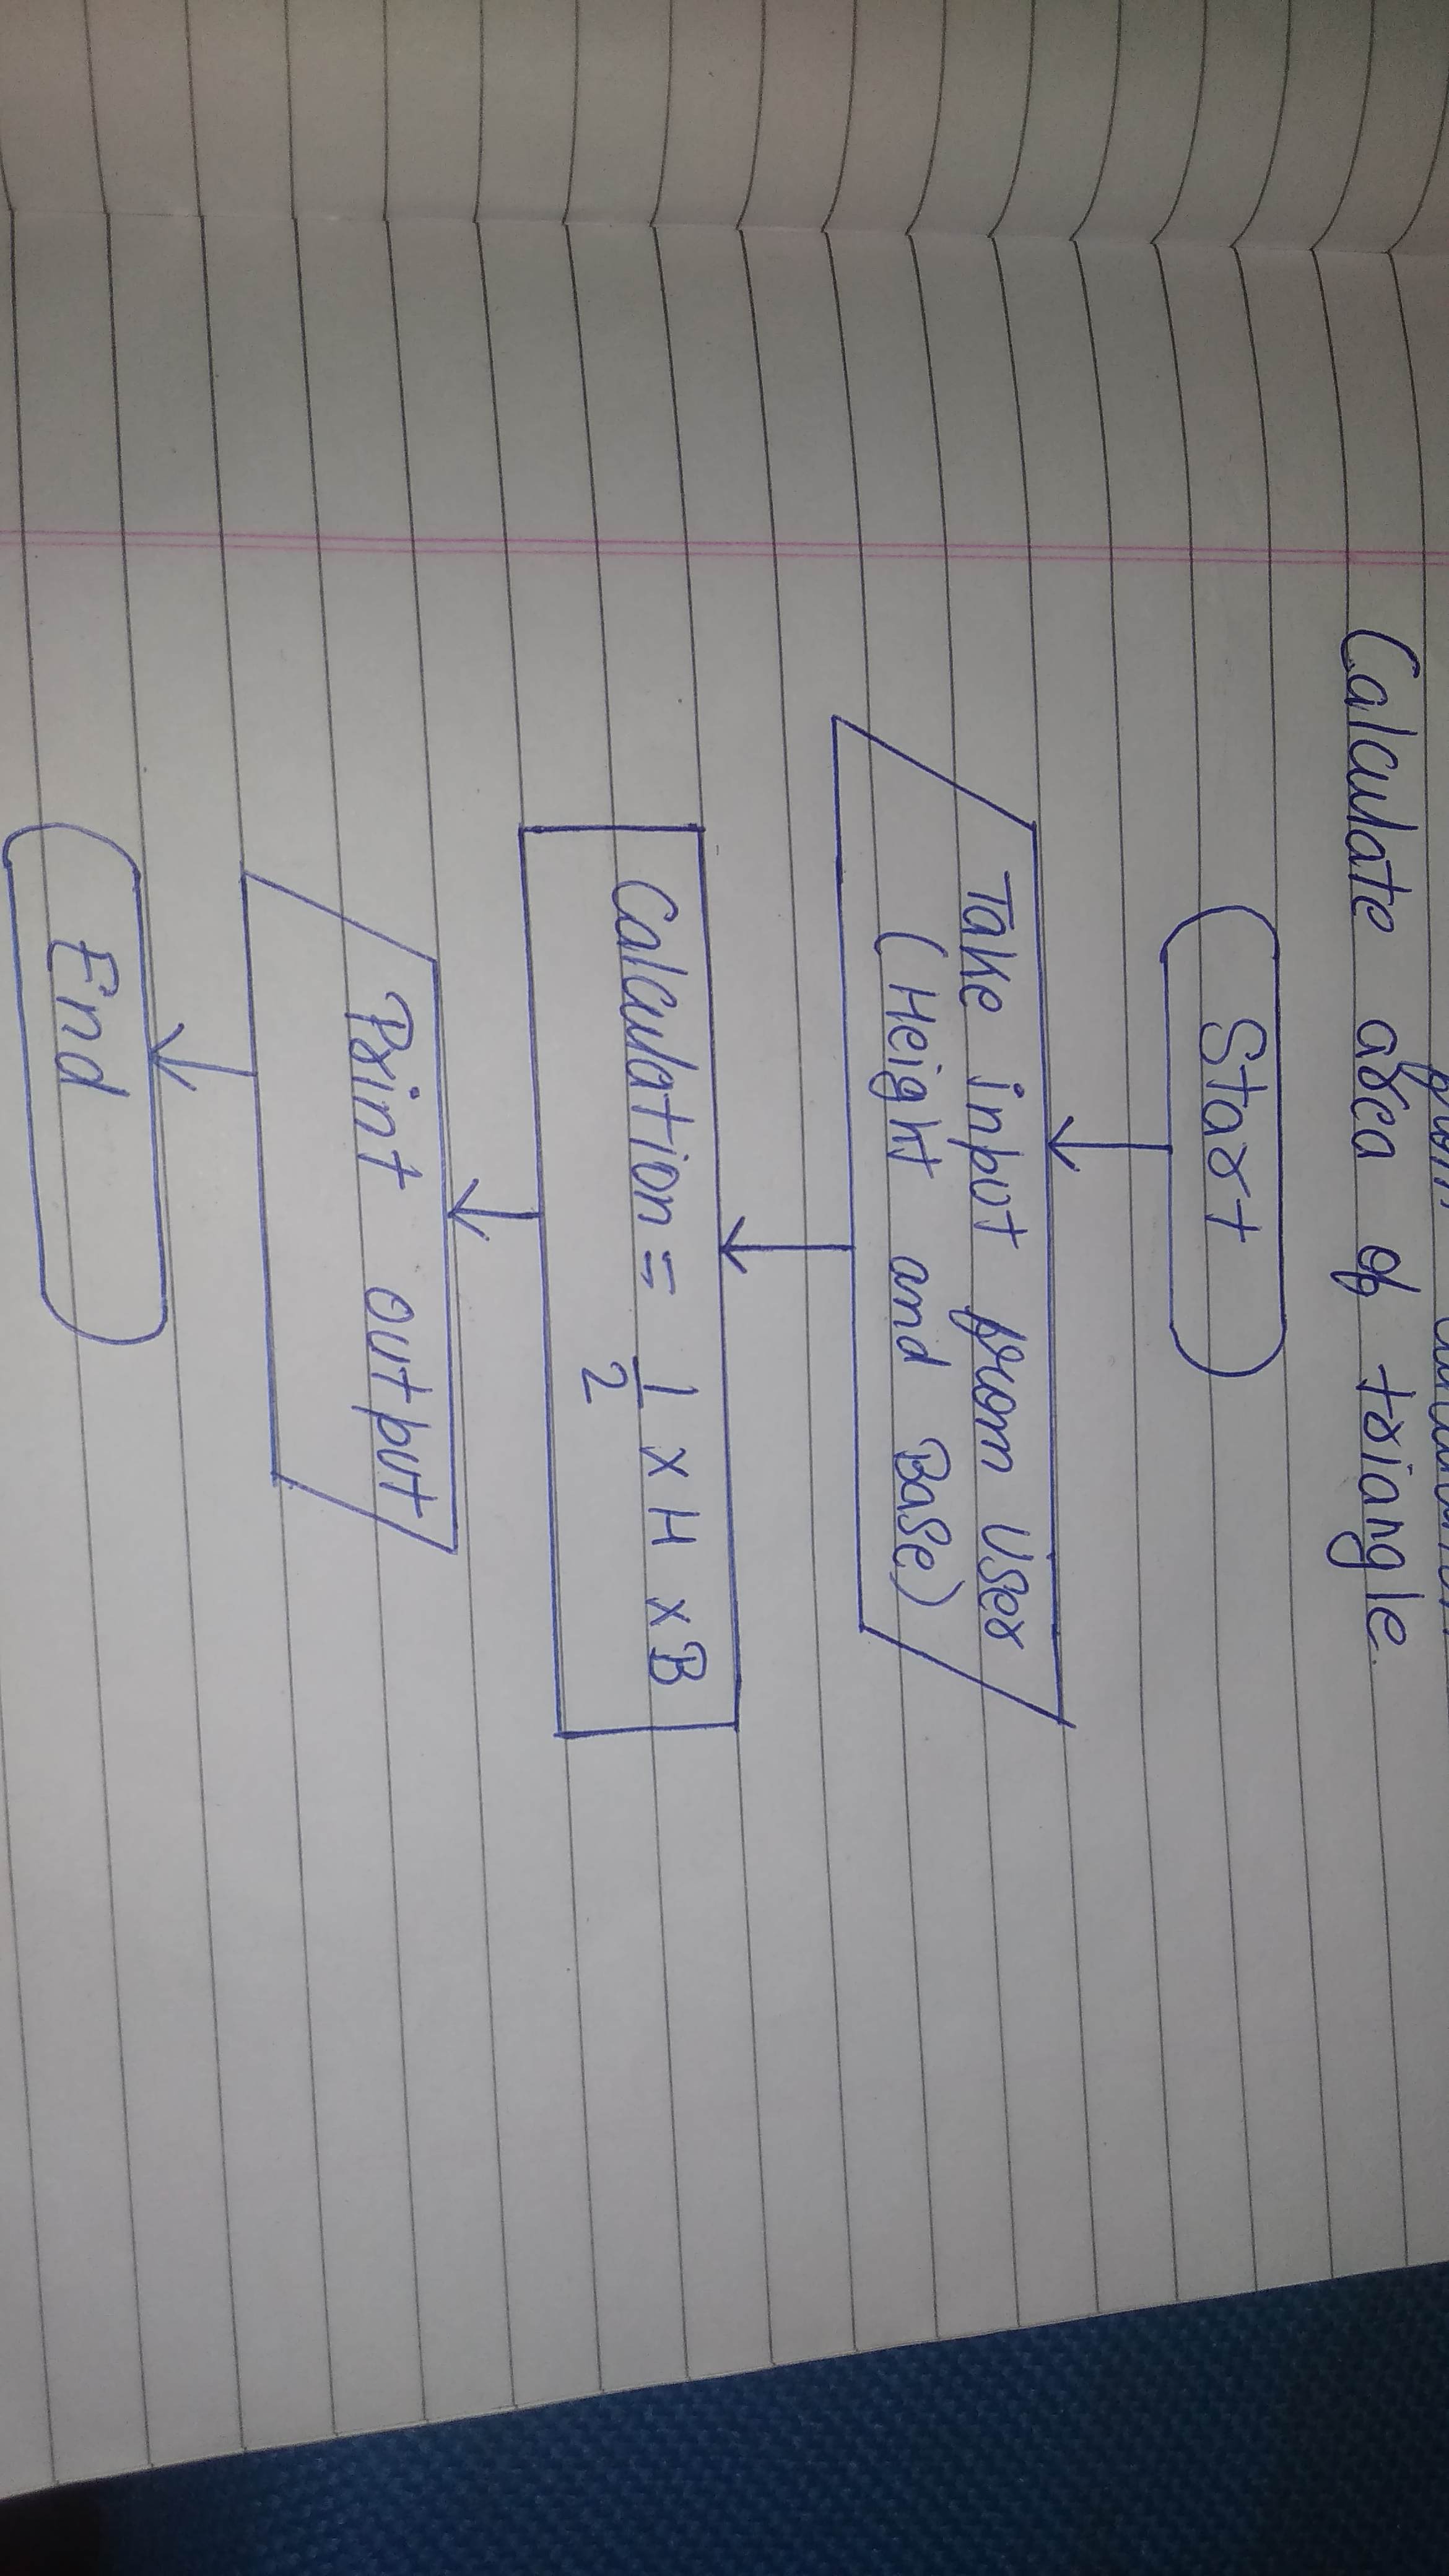 Calculate area of triangle.
Start
Take input from user
(Height and Base)
Calculation = 1/2 x H x B
Print output
End